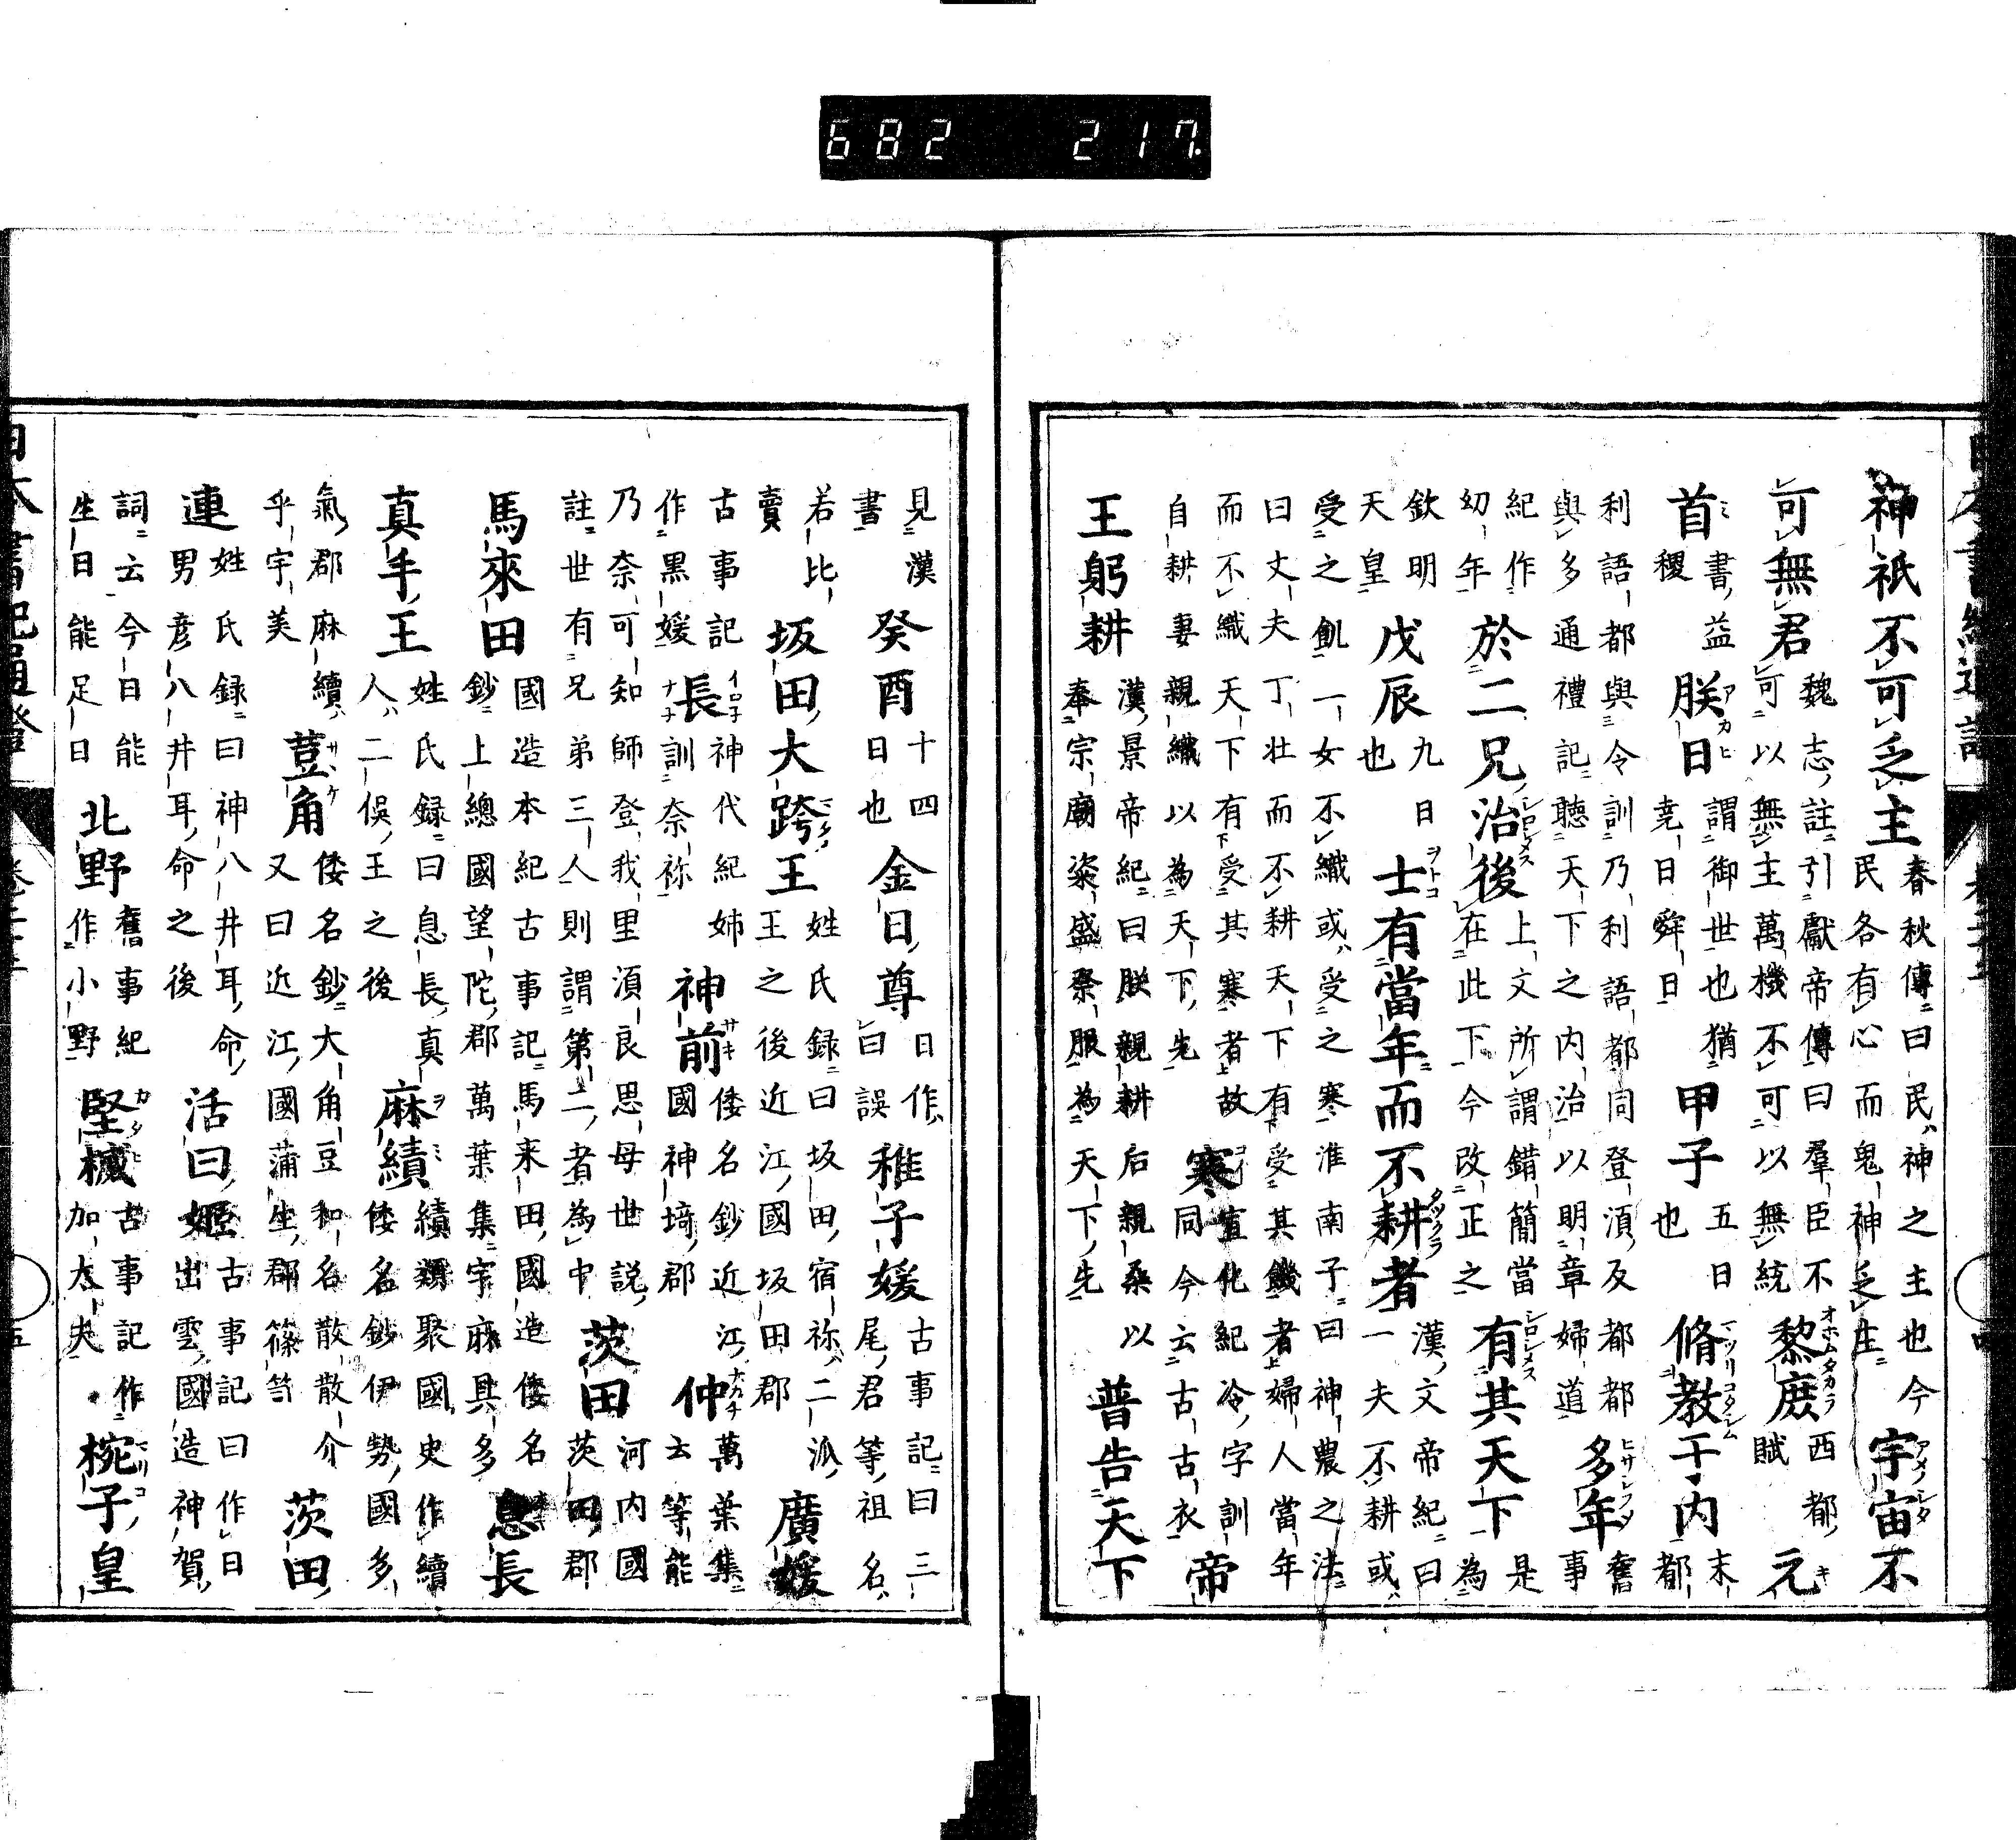 神祇不可乏主春秋傳曰民神之主也今民各有心而鬼神乏主宇宙不
可無君魏志註引獻帝傳曰羣臣不可以無主萬機不可以無統黎庶西都賦元
首書益稷朕日謂御世也猶堯日舜日甲子五日也脩教于内末都
利語都與令訓乃利語都同登湏及都都與多通禮記聽天下之内治以明章婦道多年舊事
紀作幼年於二兄治後上文所謂錯簡當在此下今改正之有其天下是為
欽明天皇戊辰九日也士有當年而不耕者漢文帝紀曰一夫不耕或
受之飢一女不織或受之寒淮南子曰神農之法曰丈夫丁壮而不耕天下有受其饑者婦人當年
而不織天下有受其寒者故自耕妻親織以為天下先寒宣化紀冷字訓同今云古古衣帝
王躬耕漢景帝紀曰朕親耕后親桑以奉宗廟粢盛祭服為天下先普告天下
見漢書癸酉十四日也金日尊日作曰誤稚子媛古事記曰三尾君等祖名
若比賣坂田大跨王姓氏録曰坂田宿祢二派王之後近江國坂田郡廣媛
古事記作黒媛長神代紀姉訓奈祢神前倭名鈔近江國神埼郡仲萬葉集云等能
乃奈可知師登我里湏良思母世説註世有兄弟三人則謂第二者為中茨田河内國茨田郡
馬來田國造本紀古事記馬来田國造倭名鈔上總國望陀郡萬葉集宇麻具多息長
真手王姓氏録曰息長真人二俣王之後麻績績類聚國史作續倭名鈔伊勢國多
氣郡麻續乎宇美荳角倭名鈔大角豆和名散散介又曰近江國蒲生郡篠笥茨田
連姓氏録曰神八井耳命男彦八井耳命之後活日姫古事記曰作日出雲國造神賀
詞云今日能生日能足日北野舊事紀作小野堅楲古事記作加太夫椀子皇
682 217